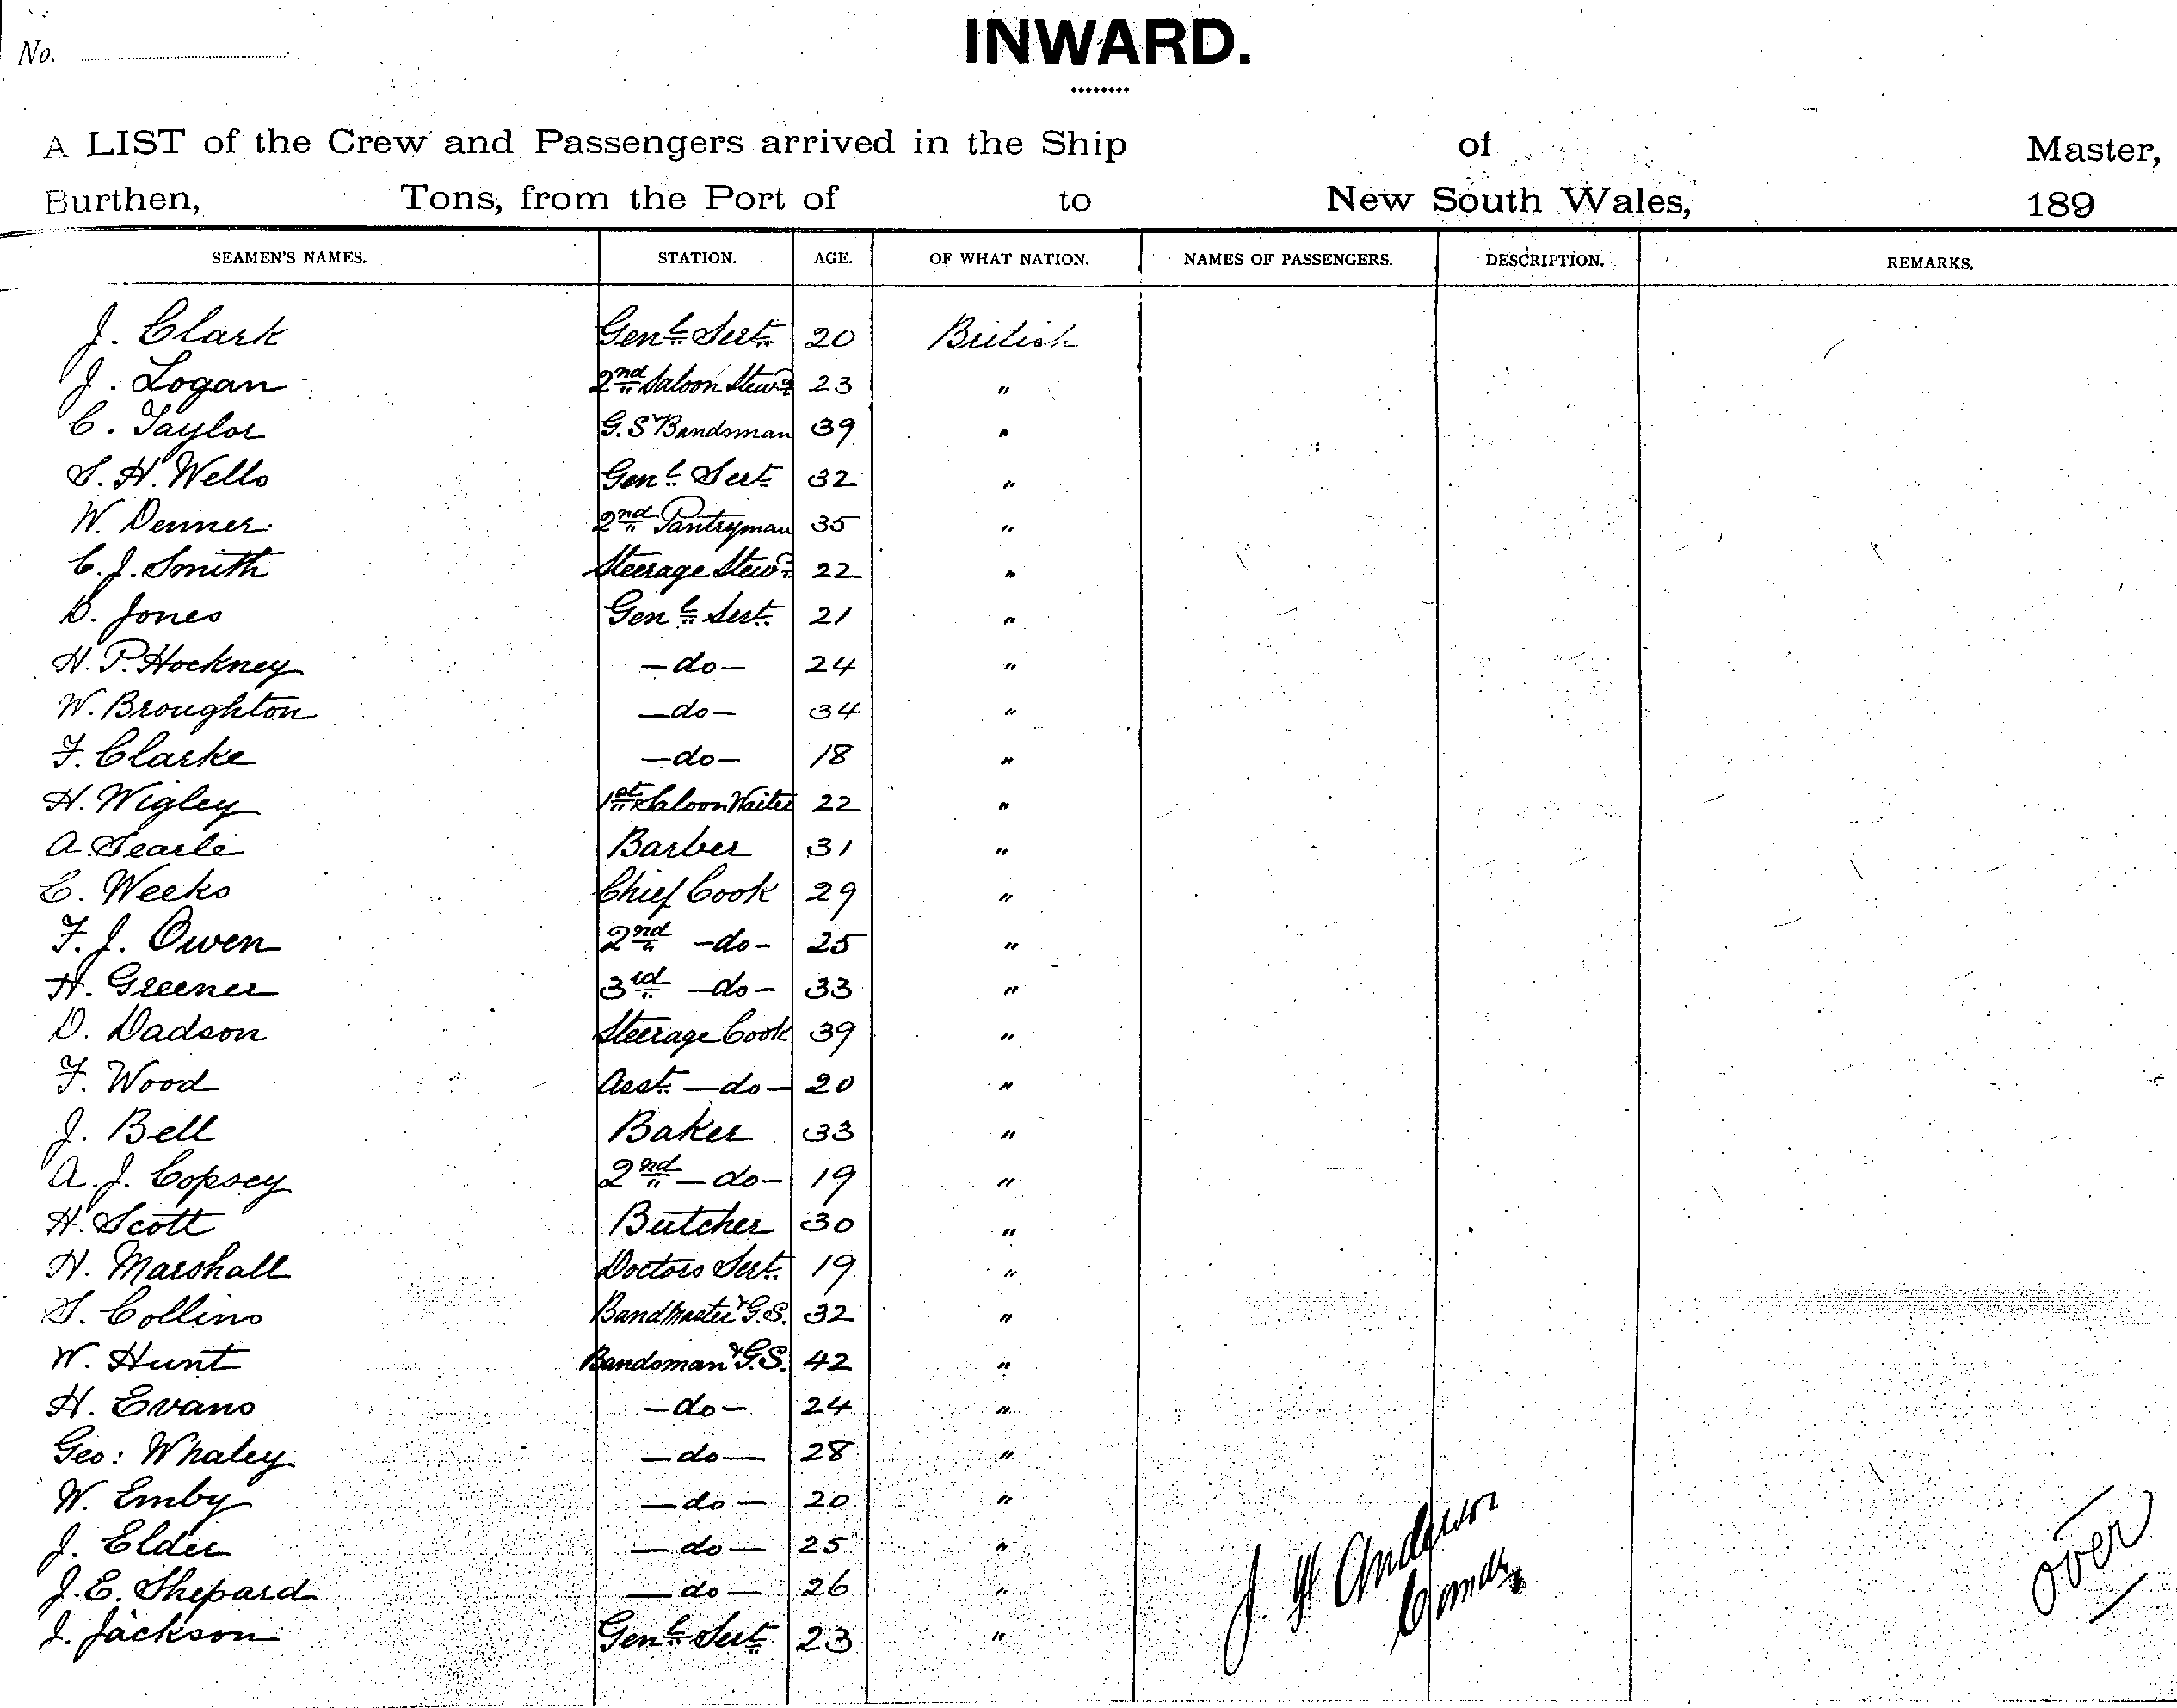 INWARD.
No.
A LIST of the Crew and Passengers arrived in the Ship of Master,
Burthen, Tons, from the Port of to New South Wales, 189
SEAMEN'S NAMES. STATION. AGE. OF WHAT NATION. NAMES OF PASSENGERS. DESCRIPTION. REMARKS.
J. Clark Genl Servt 20 British
J. Logan 2nd Saloon Stewd 23 "
C. Taylor G.S & Bandsman 39 "
S. H. Wells Genl Servt 32 "
W. Denner 2nd Pantryman 35 "
C. J. Smith Steerage Stewd 22 "
D. Jones Genl Servt 21 "
H. P. Hockney -do- 24 "
W. Broughton -do- 34 "
F. Clarke -do- 18 "
H. Wigley 1st Saloon Waiter 22 "
A. Searle Barber 31 "
C. Weeks Chief Cook 29 "
F. J. Owen 2nd -do- 25 "
H. Greener 3rd -do- 33 "
D. Dadson Steerage Cook 39 "
F. Wood Asst -do- 20 "
J. Bell Baker 33 "
A. J. Copsey 2nd -do- 19 "
H. Scott Butcher 30 "
H. Marshall Doctors Servt 19 "
S. Collins Bandmaster & G.S. 32 "
W. Hunt Bandsman & G.S. 42 "
H. Evans -do- 24 "
Geo: Whaley -do- 28 "
W. Emby -do- 20 "
J. Elder -do- 25 "
J. E. Shepard -do- 26 "
J. Jackson Genl Servt 23 "
J H Anderson
Comdr
over